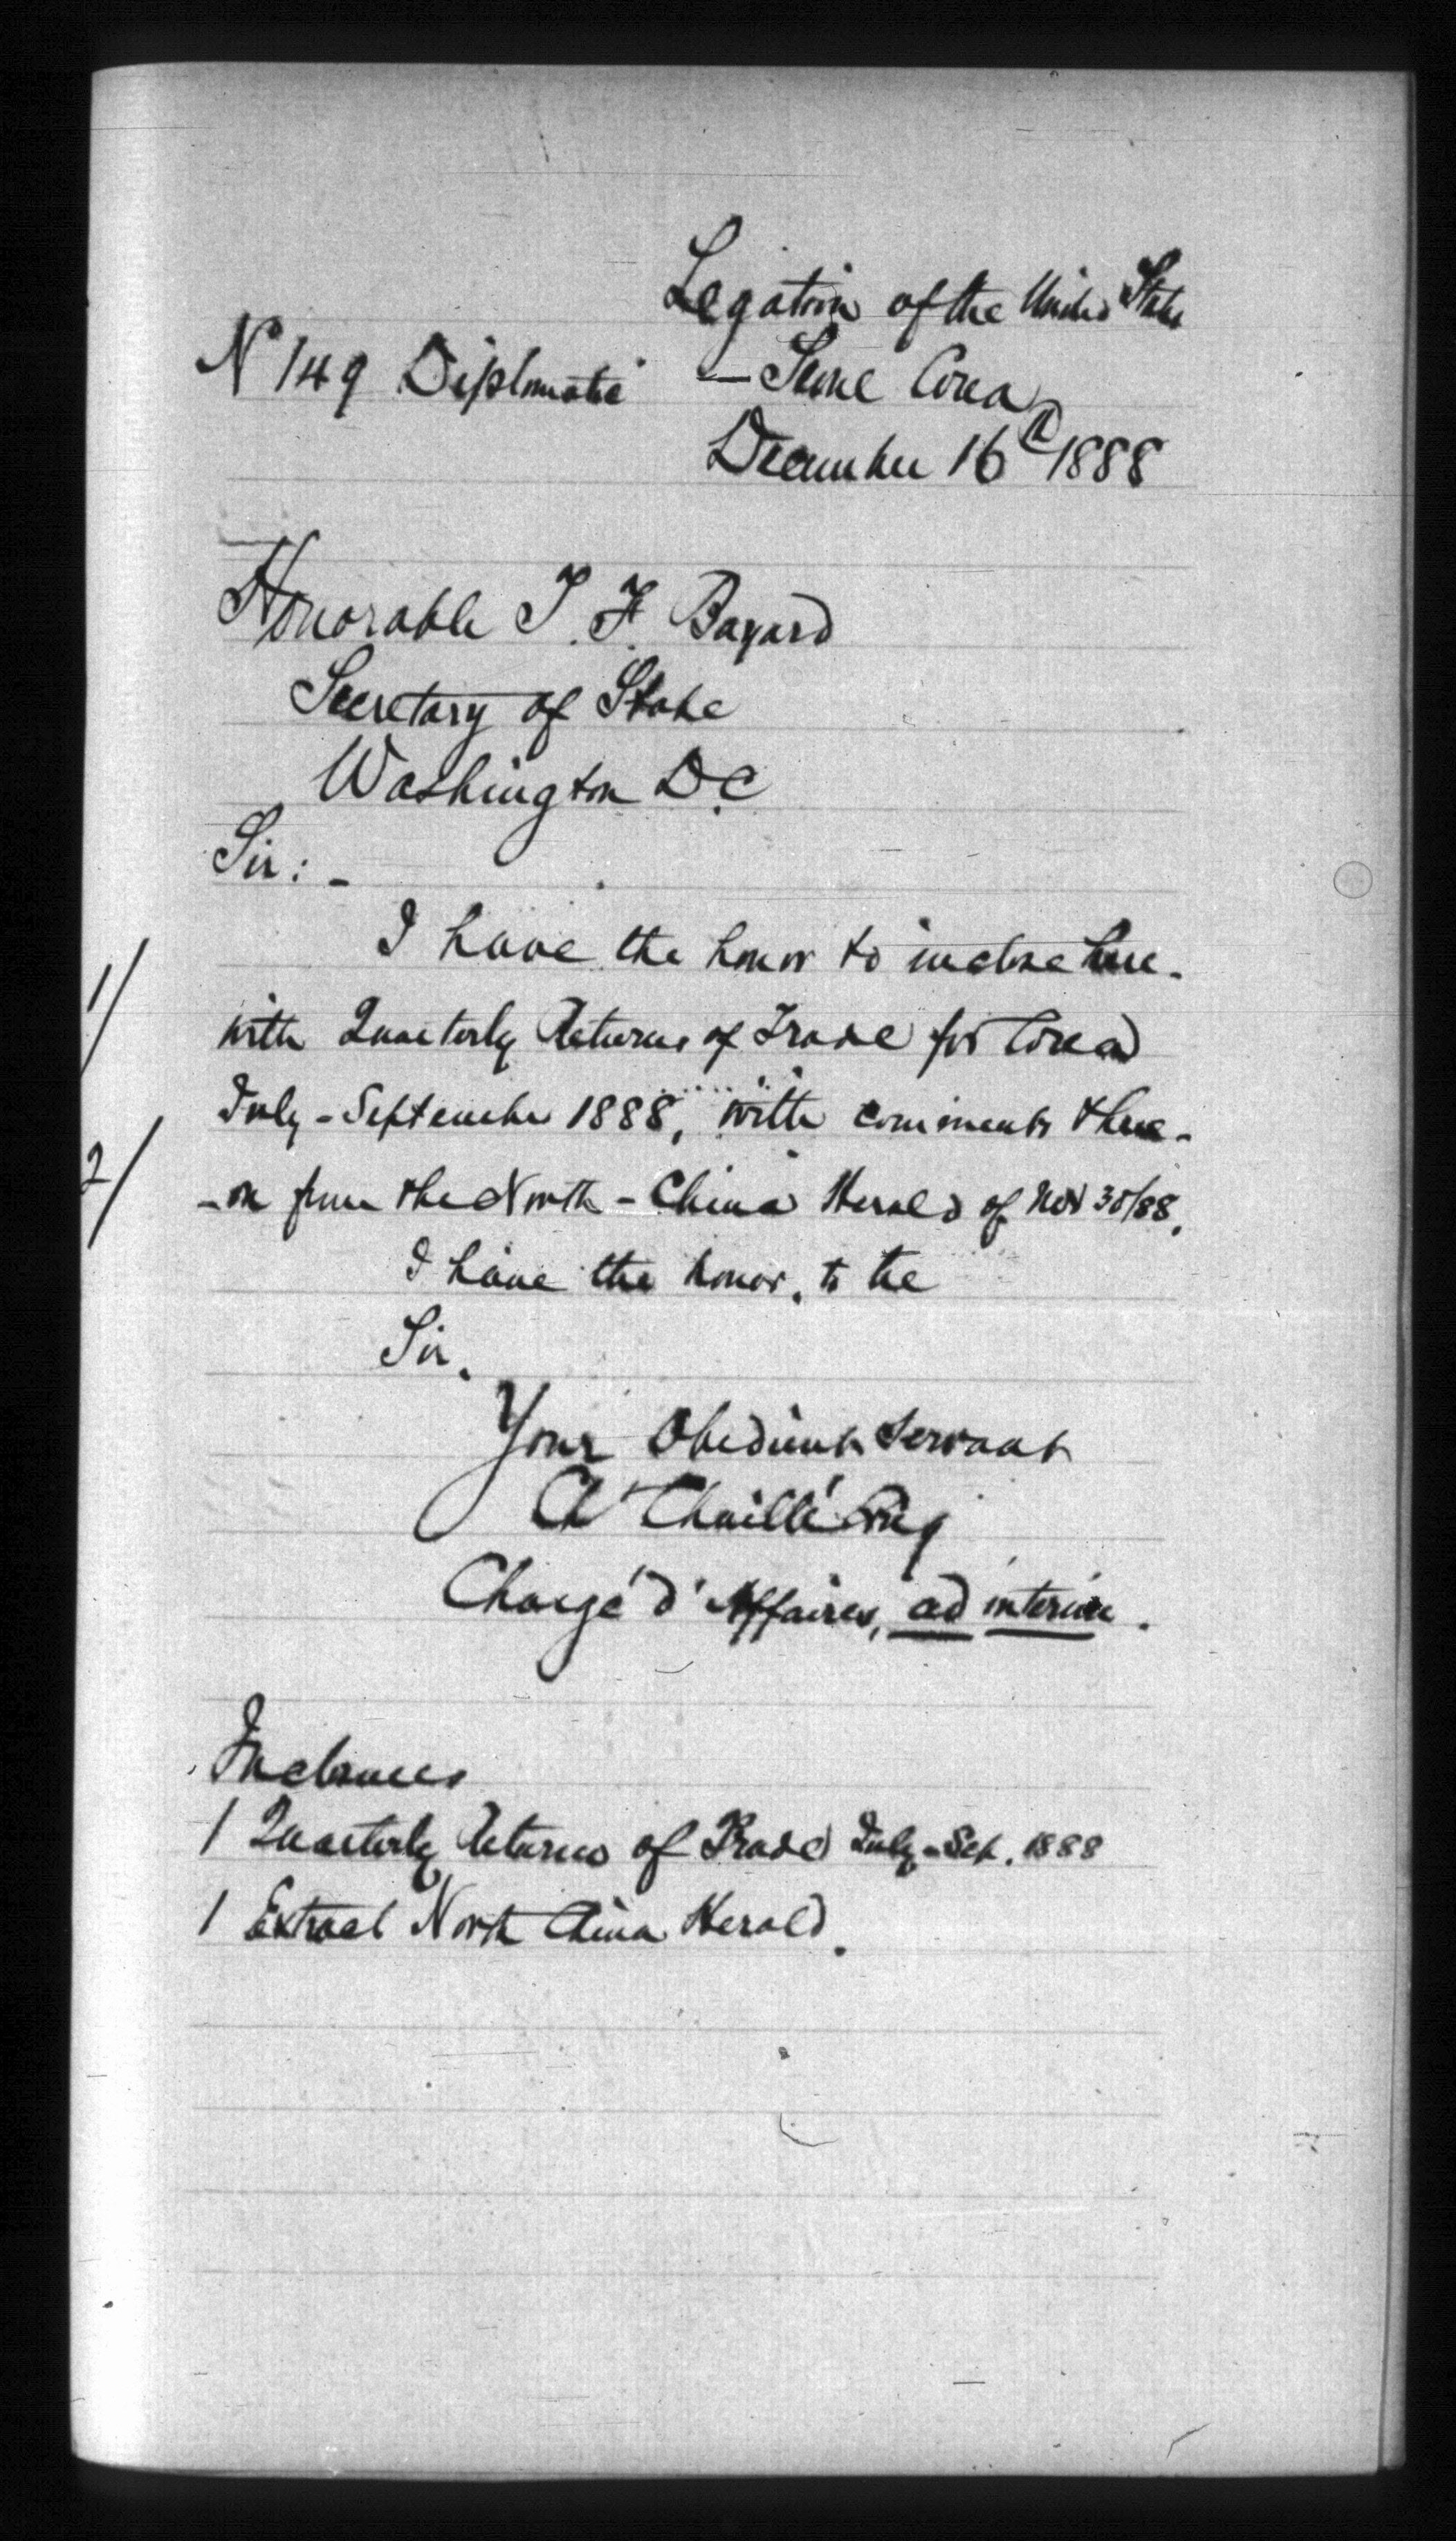 Legation of the United States
N° 149 Diplomatic — Seoul Corea
December 16th 1888
Honorable T. F. Bayard
Secretary of State
Washington D.C
Sir: -
I have the honor to inclose here-
1/
with Quarterly Returns of Trade for Corea
July - September 1888, with comments there-
2/
- on from the North - China Herald of Nov 30/88.
I have the honor, to be
Sir,
Your Obedient Servant
Ch Chaillé Long
Chargé d'Affaires, ad interim.
Inclosures
1 Quarterly Returns of Trade July - Sep. 1888
1 Extract North China Herald.